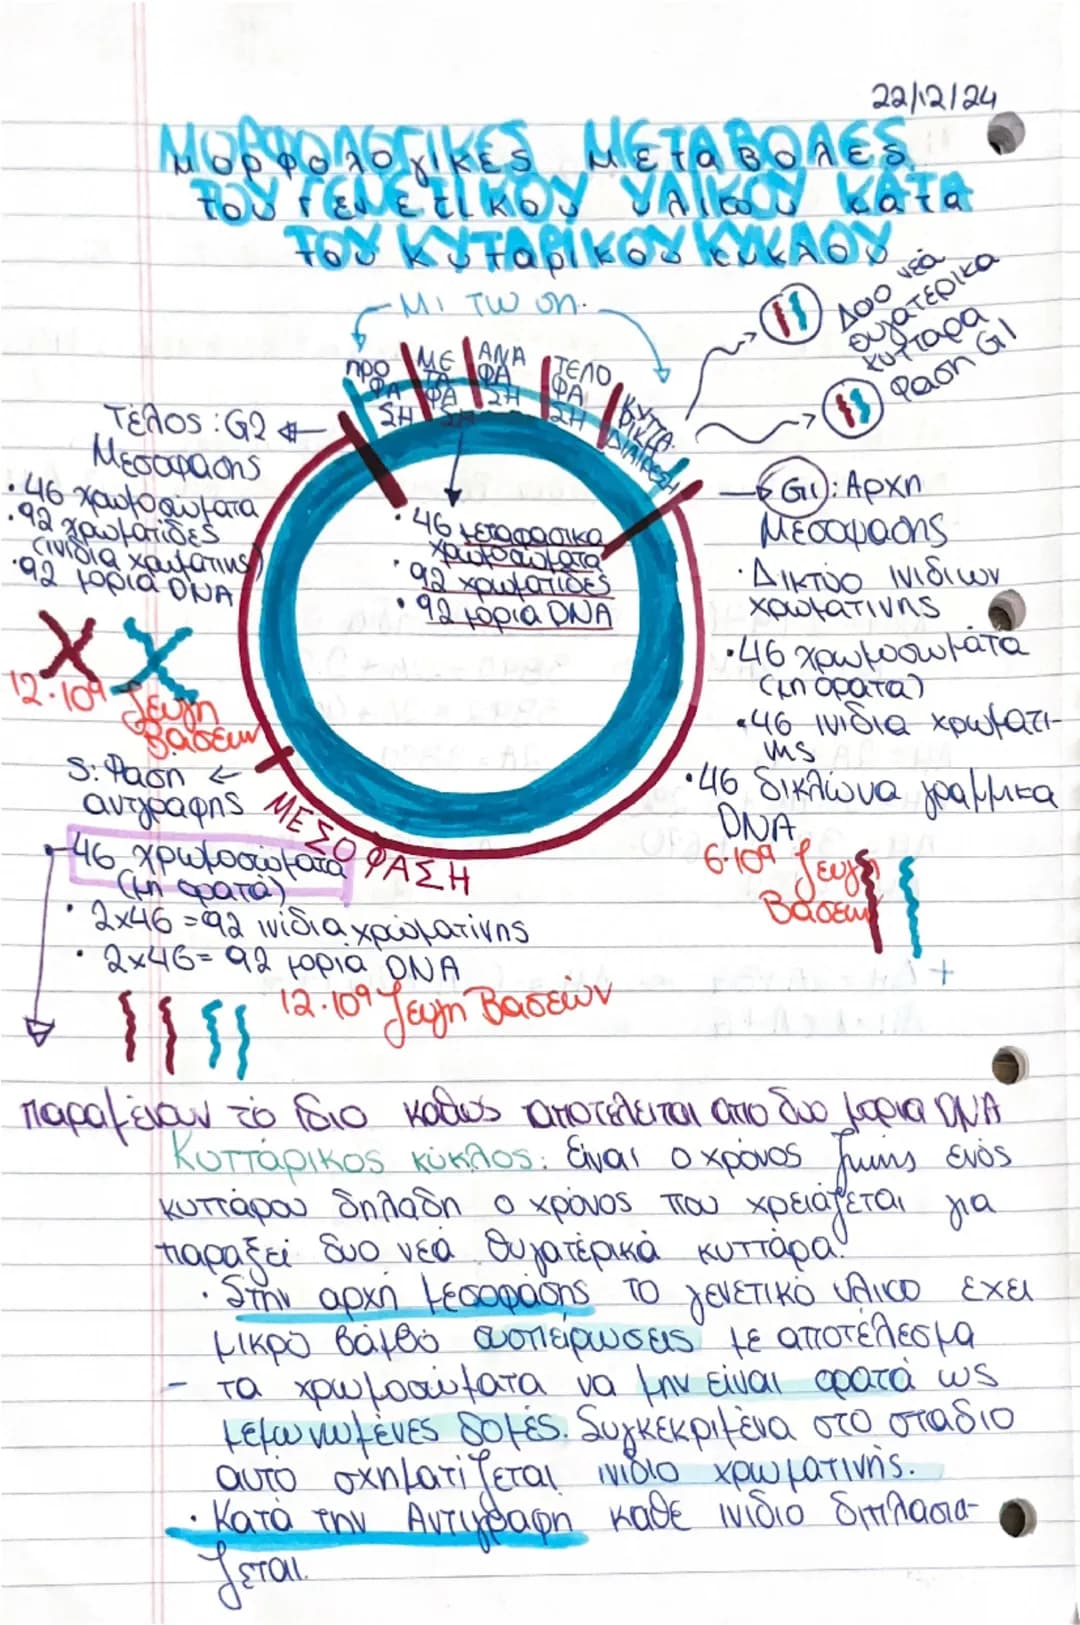 22/12/24
ΜΟΡΦΟΛΟΓΙΚΕΣ ΜΕΤΑΒΟΛΕΣ
ΤΟΥ ΓΕΝΕΤΙΚΟΥ ΥΛΙΚΟΥ ΚΑΤΑ
ΤΟΥ ΚΥΤΑΡΙΚΟΥ ΚΥΚΛΟΥ
Μιτωση.
ΠΡΟ
ΦΑ
ΣΗ
ΜΕ
ΤΑ
ΦΑ
ΣΗ
ΑΝΑ
ΦΑ
ΣΗ
ΤΕΛΟ
ΦΑ
ΣΗ
ΚΥΤΤΑ
ΡΙΚΗ
ΔΙΑΙΡΕΣΗ
Δυο νεα
θυγατερικα
κυτταρα
Φαση G1
Τέλος: G2
Μεσοφασης
• 46 χρωμοσώματα
• 92 χρωματίδες
(ινίδια χρωματινης)
• 92 μορια DNA
12·10⁹ ζευγη
Βασεων
• 46 μεταφασικα
χρωμοσωματα
• 92 χρωματιδες
• 92 μόρια DNA
G1: Αρχη
Μεσοφασης
• Δικτυο ινιδιων
χρωματινης
• 46 χρωμοσωμάτα
(μη ορατα)
• 46 ινιδια χρωματι-
νης
• 46 δικλωνα γραμμικα
DNA
6·10⁹ ζευγη
Βασεων
+
S: Φαση
αντγραφης
ΜΕΣΟΦΑΣΗ
46 χρωμοσώματα
(μη ορατά)
• 2x46 = 92 ινίδια χρωματίνης
• 2x46 = 92 μορια DNA
12·10⁹ ζευγη Βασεών
παραμένουν το ίδιο καθως αποτέλειται απο δυο μορια DNA
Κυττάρικος κύκλος: Είναι ο χρόνος ζωης ενός
κυττάρου δηλαδη ο χρόνος που χρειάζεται για
παραξει δυο νεά θυγατέρικά κυττάρα.
• Στην αρχή μεσοφάσης το γενετικό υλικο εχει
μικρο βάμθο συσπείρωσεις με αποτέλεσμα
- τα χρωμοσώματα να μην είναι ορατά ως
μεμωνωμένες δομές. Συγκεκριμένα στο σταδιο
αυτο σχηματίζεται ινιδιο χρωματινής.
• Κατά την Αντιγραφη καθε ινιδιο διπλασια-
ζεται.